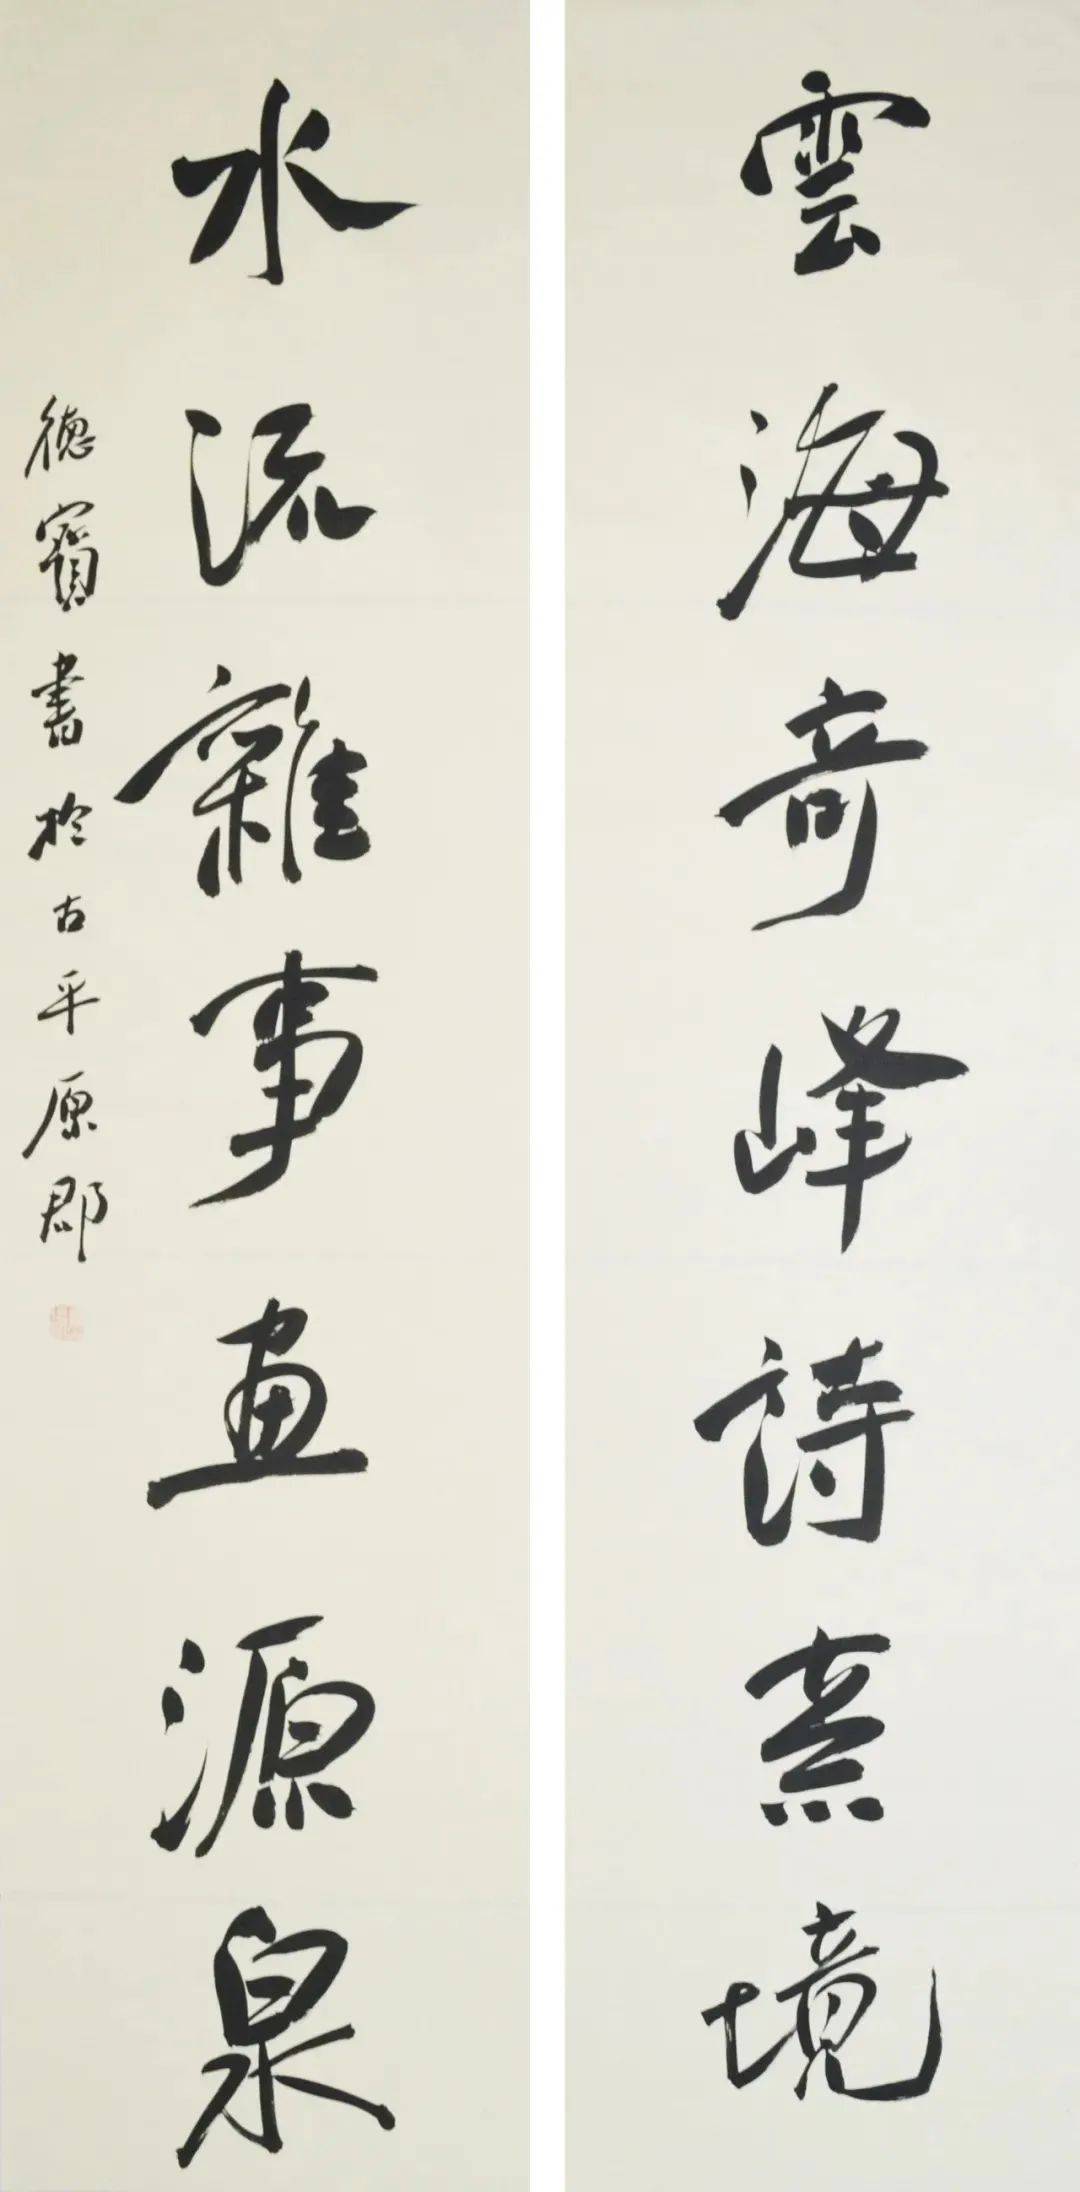 雲海奇峰詩意境
水流雜事画源泉
德寳書於古平原郡